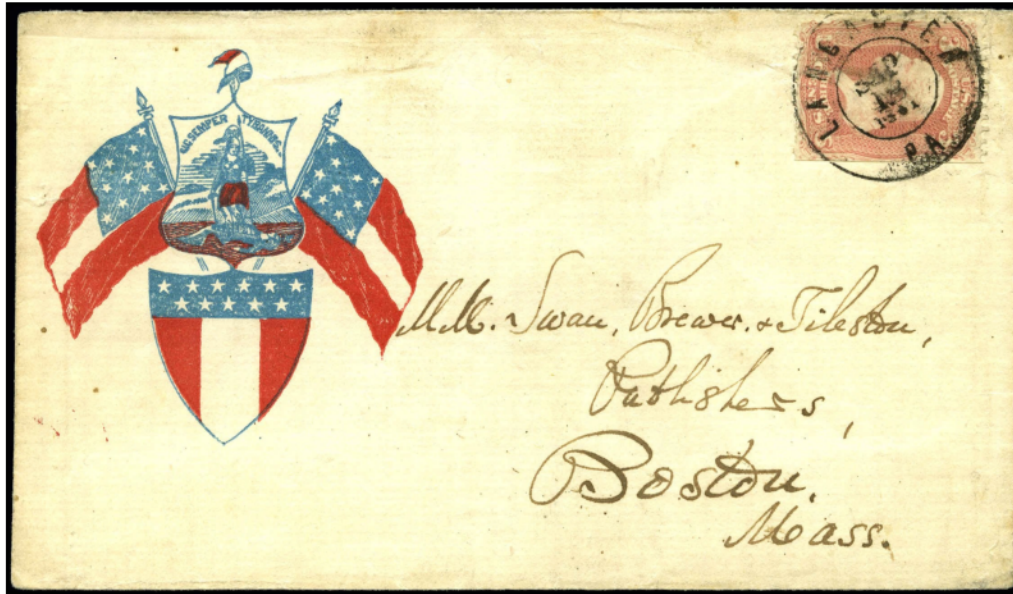 SIC SEMPER TYRANNIS
LANCASTER
PA.
MM. Swan, Brewer, & Tileston,
Publishers,
Boston,
Mass.